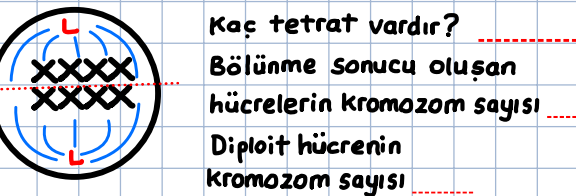 Kaç tetrat vardır?
Bölünme sonucu oluşan
hücrelerin kromozom sayısı
Diploit hücrenin
kromozom sayısı